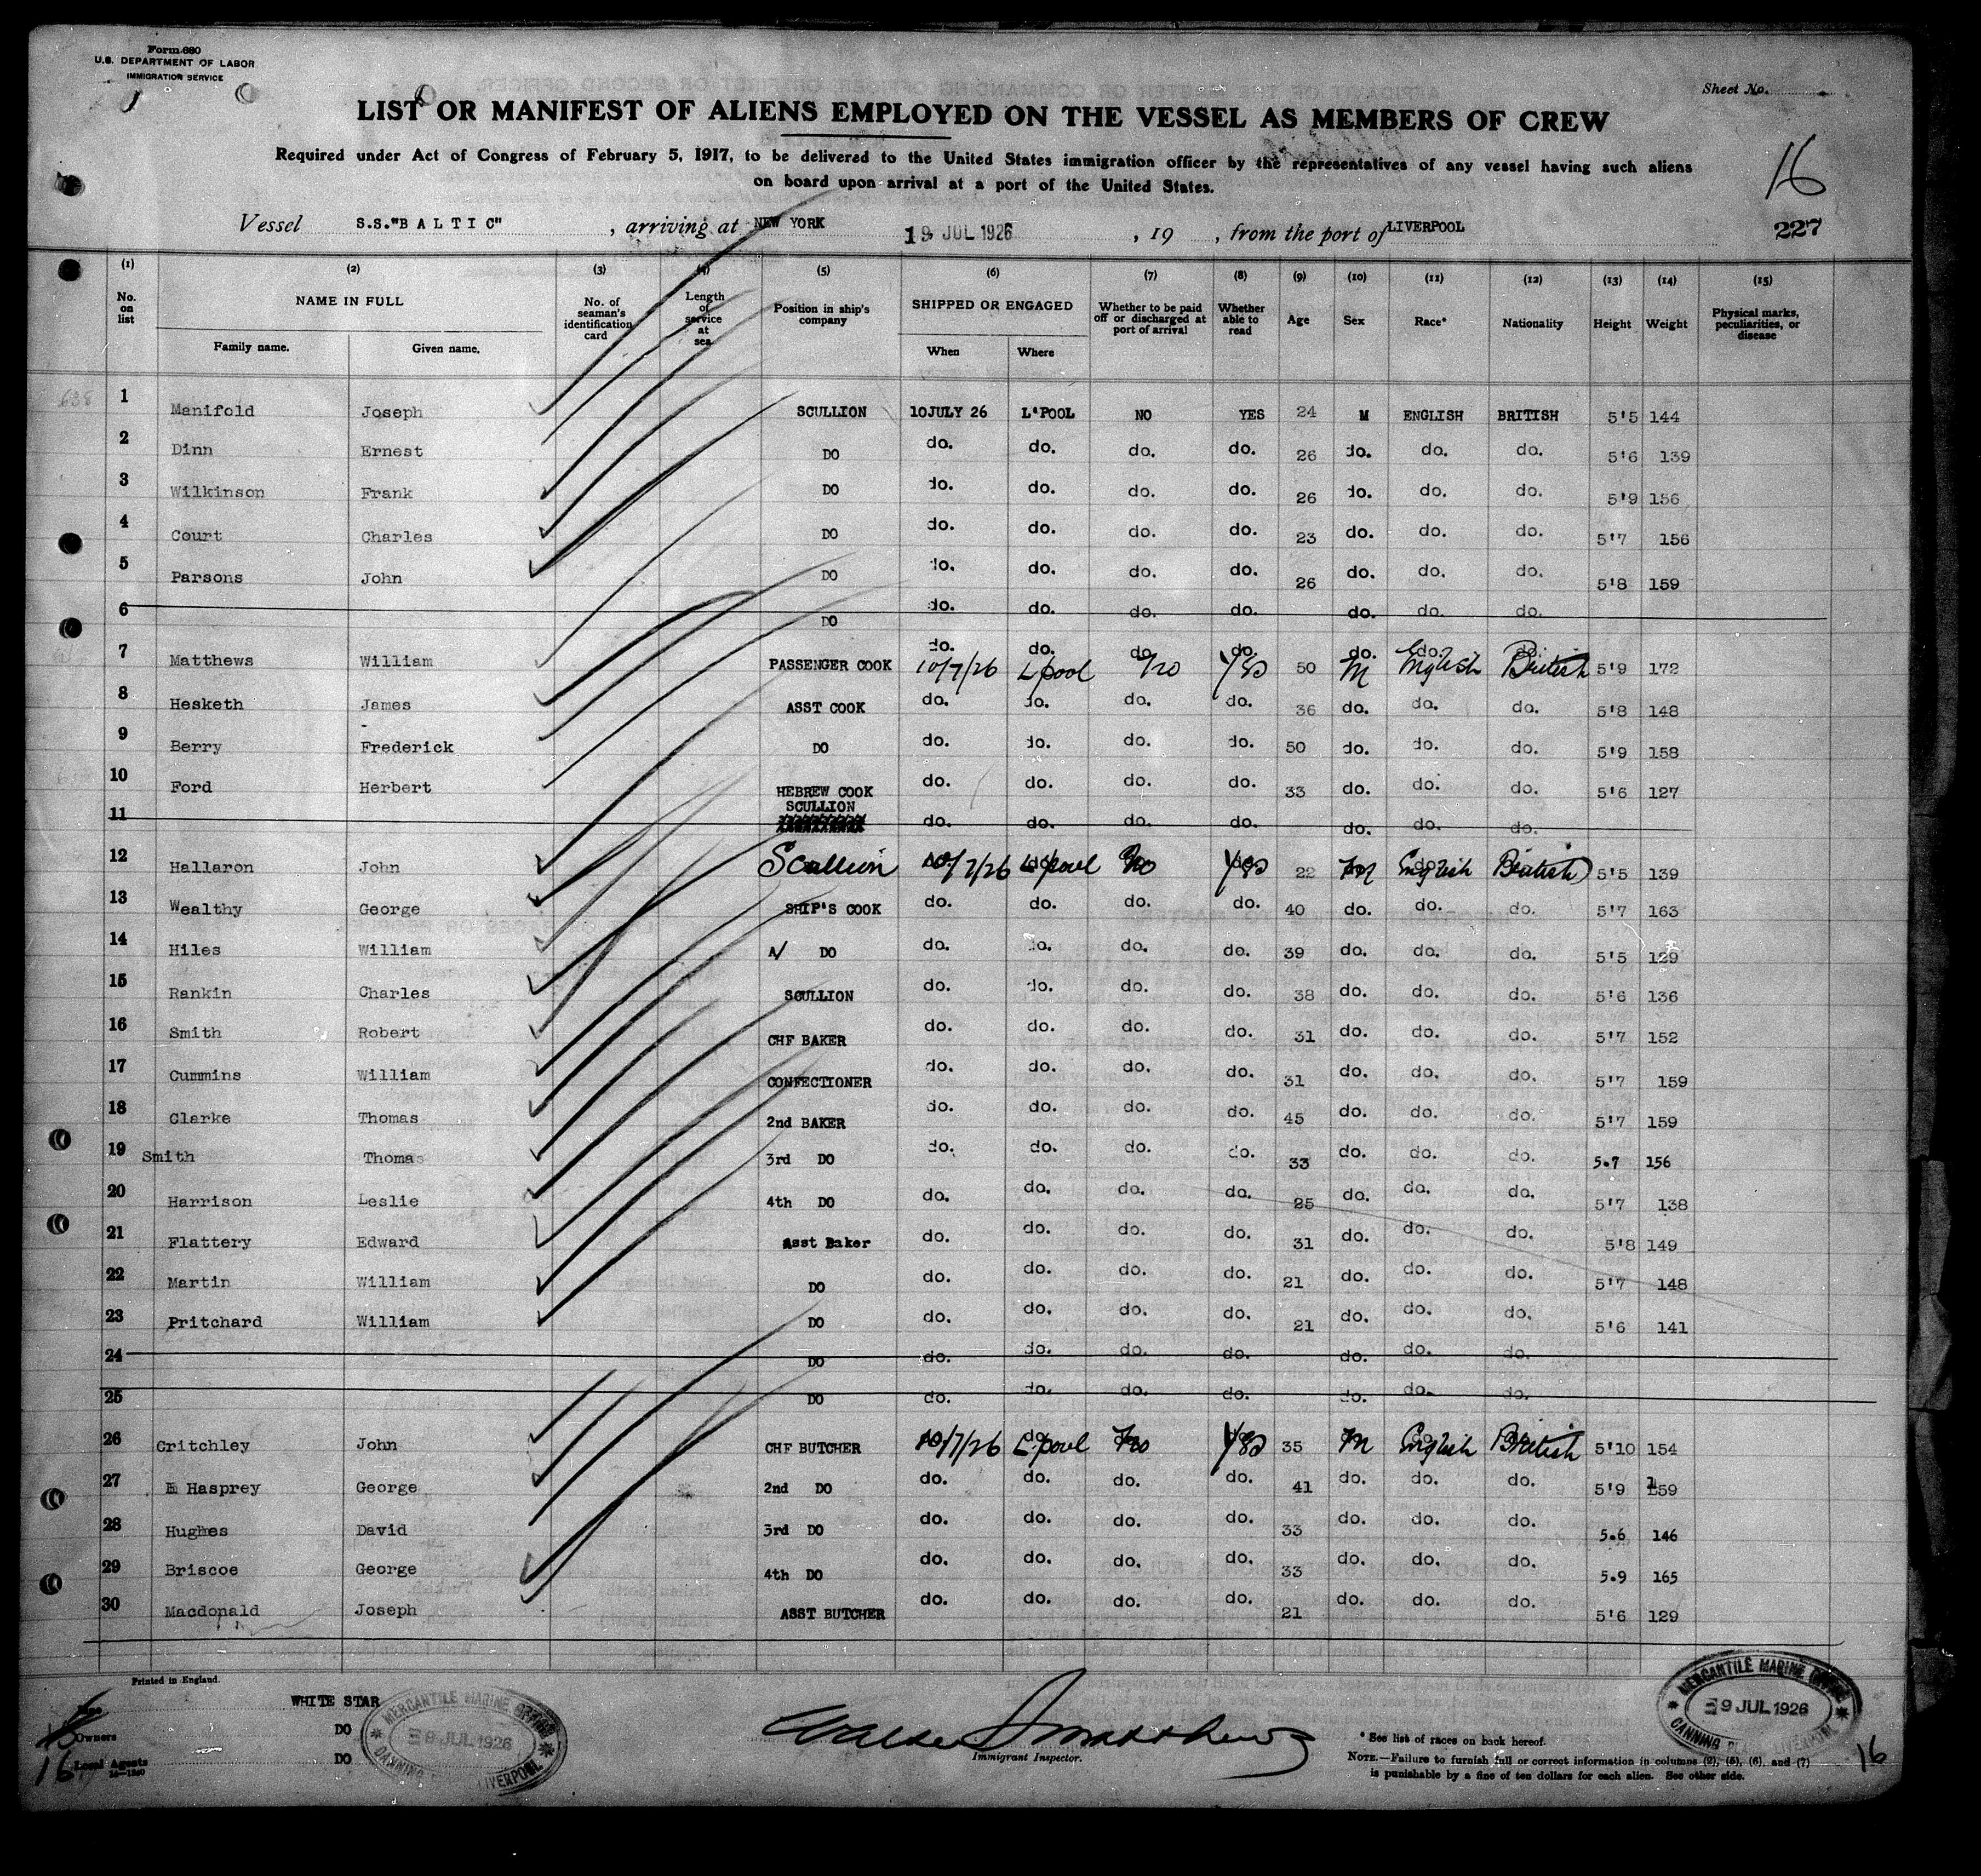 Form 680
U.S. DEPARTMENT OF LABOR
IMMIGRATION SERVICE
Sheet No.
LIST OR MANIFEST OF ALIENS EMPLOYED ON THE VESSEL AS MEMBERS OF CREW
Required under Act of Congress of February 5, 1917, to be delivered to the United States immigration officer by the representatives of any vessel having such aliens
on board upon arrival at a port of the United States.
16
Vessel S.S."BALTIC", arriving at NEW YORK 19 JUL 1926, 19 , from the port of LIVERPOOL
227
(1) (2) (3) (4) (5) (6) (7) (8) (9) (10) (11) (12) (13) (14) (15)
No. on list NAME IN FULL No. of seaman's identification card Length of service at sea Position in ship's company SHIPPED OR ENGAGED Whether to be paid off or discharged at port of arrival Whether able to read Age Sex Race* Nationality Height Weight Physical marks, peculiarities, or disease
Family name. Given name. When Where
1 Manifold Joseph SCULLION 10JULY 26 L'POOL NO YES 24 M ENGLISH BRITISH 5'5 144
2 Dinn Ernest DO do. do. do. do. 26 do. do. do. 5'6 139
3 Wilkinson Frank DO do. do. do. do. 26 do. do. do. 5'9 156
4 Court Charles DO do. do. do. do. 23 do. do. do. 5'7 156
5 Parsons John DO do. do. do. do. 26 do. do. do. 5'8 159
6 DO do. do. do. do. do. do. do.
7 Matthews William PASSENGER COOK do. do. do. do. do. do. do.
10/7/26 L'pool No Yes 50 M English British 5'9 172
8 Hesketh James ASST COOK do. do. do. do. 36 do. do. do. 5'8 148
9 Berry Frederick DO do. do. do. do. 50 do. do. do. 5'9 158
10 Ford Herbert HEBREW COOK do. do. do. do. 33 do. do. do. 5'6 127
SCULLION
11 do. do. do. do. do. do. do.
12 Hallaron John Scullion 10/7/26 L'pool No Yes 22 M English British 5'5 139
13 Wealthy George SHIP'S COOK do. do. do. do. 40 do. do. do. 5'7 163
14 Hiles William A/ DO do. do. do. do. 39 do. do. do. 5'5 129
15 Rankin Charles SCULLION do. do. do. do. 38 do. do. do. 5'6 136
16 Smith Robert CHF BAKER do. do. do. do. 31 do. do. do. 5'7 152
17 Cummins William CONFECTIONER do. do. do. do. 31 do. do. do. 5'7 159
18 Clarke Thomas 2nd BAKER do. do. do. do. 45 do. do. do. 5'7 159
19 Smith Thomas 3rd DO do. do. do. do. 33 do. do. do. 5.7 156
20 Harrison Leslie 4th DO do. do. do. do. 25 do. do. do. 5'7 138
21 Flattery Edward Asst Baker do. do. do. do. 31 do. do. do. 5'8 149
22 Martin William DO do. do. do. do. 21 do. do. do. 5'7 148
23 Pritchard William DO do. do. do. do. 21 do. do. do. 5'6 141
24 DO do. do. do. do. do. do. do.
25 DO do. do. do. do. do. do. do.
26 Critchley John CHF BUTCHER 10/7/26 L'pool No Yes 35 M English British 5'10 154
27 Hasprey George 2nd DO do. do. do. do. 41 do. do. do. 5'9 159
28 Hughes David 3rd DO do. do. do. do. 33 do. do. do. 5.6 146
29 Briscoe George 4th DO do. do. do. do. 33 do. do. do. 5.9 165
30 Macdonald Joseph ASST BUTCHER do. do. do. do. 21 do. do. do. 5'6 129
Printed in England.
WHITE STAR
Owners DO
16 Local Agents DO
14—1240
MERCANTILE MARINE OFFICE
9 JUL 1926
CANNING LIVERPOOL
Immigrant Inspector.
* See list of races on back hereof.
NOTE.—Failure to furnish full or correct information in columns (2), (5), (6), and (7)
is punishable by a fine of ten dollars for each alien. See other side.
MERCANTILE MARINE OFFICE
9 JUL 1926
CANNING LIVERPOOL
16